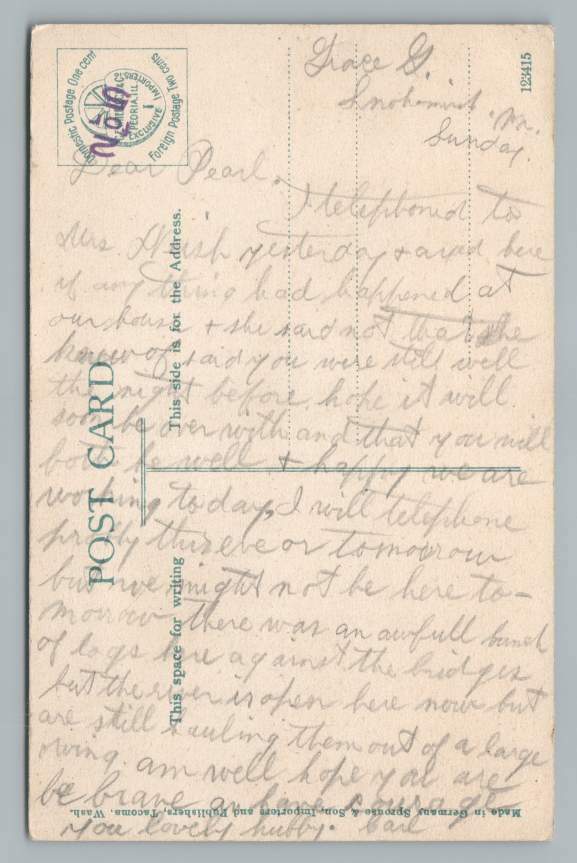 Grace G.
Snohomish Wn.
Sunday
Dear Pearl.
I telephoned to
Mrs. yesterday + asked here
if any thing had happened at
our house + she said not that she
knew of, said you were still well
the night before. hope it will
soon be over with and that you will
both be well + happy we are
working today, I will telephone
probly this eve or tomorrow
but we might not be here to-
morrow there was an awfull bunch
of logs here against the bridges
but the river is open here now but
are still hauling them out of a large
wing. am well hope you are
be brave an have courage
you lovely hubby. Carl
POST CARD
This side is for the Address.
This space for writing
Domestic Postage One cent
Foreign Postage Two cents
PEORIA, ILL
EXCLUSIVE IMPORTERS
123415
Made in Germany Sprouse & Son, Importers and Publishers, Tacoma, Wash.